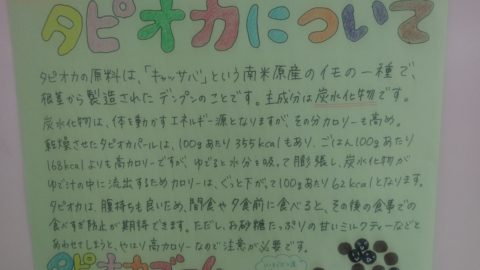 タピオカについて
タピオカの原料は、「キャッサバ」という南米原産のイモの一種で、
根茎から製造されたデンプンのことです。主成分は炭水化物です。
炭水化物は、体を動かすエネルギー源となりますが、その分カロリーも高め。
乾燥させたタピオカパールは、100gあたり355kcalもあり、ごはん100gあたり
168kcalよりも高カロリーですが、ゆでると水分を吸って膨張し、炭水化物が
ゆで汁の中に流出するためカロリーは、ぐっと下がって100gあたり62kcalとなります。
タピオカは、腹持ちも良いため、間食や夕食前に食べると、その後の食事での
食べすぎ防止が期待できます。ただし、お砂糖たっぷりの甘いミルクティーなどと
あわせてしまうと、やはり高カロリーなので注意が必要です。
タピオカ